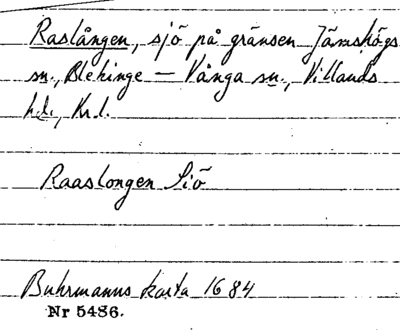 Raslången, sjö på gränsen Jämshögs
sn., Blekinge – Vånga sn., Villands
hd., Kr.l.
Raaslongen Siö
Buhrmanns karta 1684
Nr 5486.